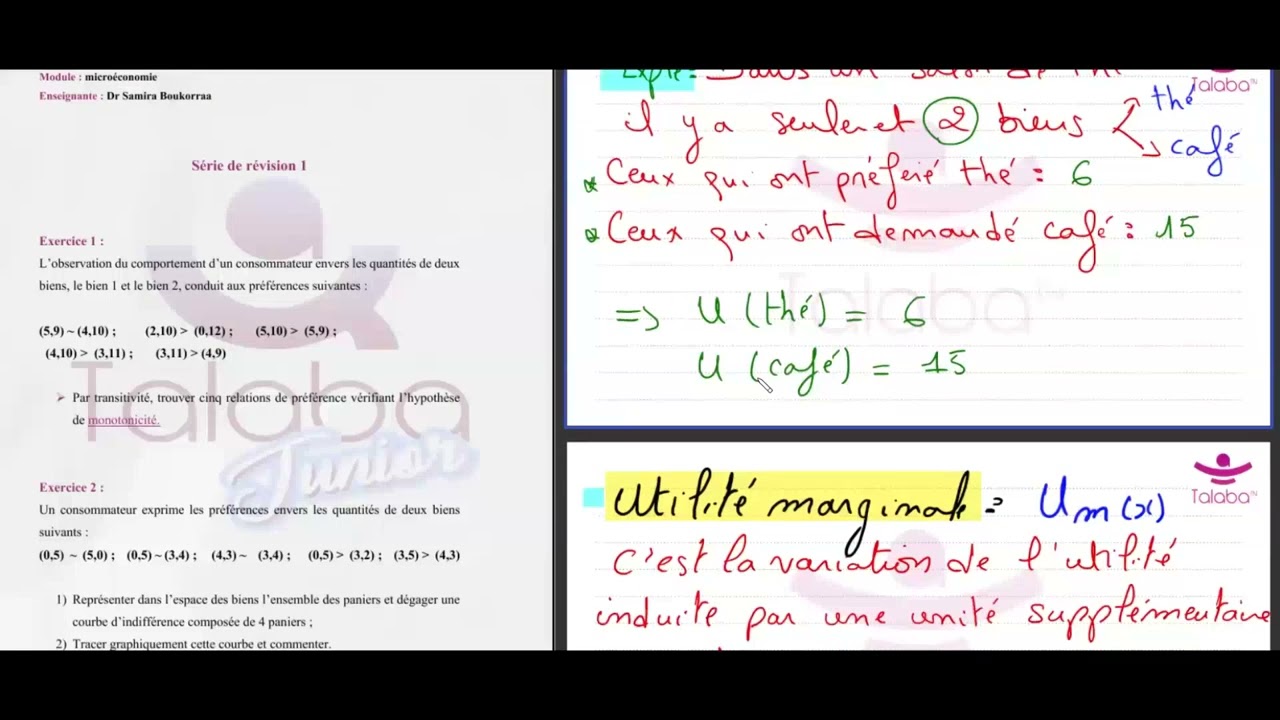 Module : microéconomie
Enseignante : Dr Samira Boukorraa
Série de révision 1
Exercice 1 :
L'observation du comportement d'un consommateur envers les quantités de deux
biens, le bien 1 et le bien 2, conduit aux préférences suivantes :
(5,9) ~ (4,10) ; (2,10) > (0,12) ; (5,10) > (5,9) ;
(4,10) > (3,11) ; (3,11) > (4,9)
➢ Par transitivité, trouver cinq relations de préférence vérifiant l'hypothèse
de monotonicité.
Talaba
Junior
Exercice 2 :
Un consommateur exprime les préférences envers les quantités de deux biens
suivants :
(0,5) ~ (5,0) ; (0,5) ~ (3,4) ; (4,3) ~ (3,4) ; (0,5) > (3,2) ; (3,5) > (4,3)
1) Représenter dans l'espace des biens l'ensemble des paniers et dégager une
courbe d'indifférence composée de 4 paniers ;
2) Tracer graphiquement cette courbe et commenter.
Exple: Dans un salon de thé
Talaba
il y a seulemet 2 biens
thé
café
Ceux qui ont préféré thé : 6
Ceux qui ont demandé café : 15
Talaba
=> U (thé) = 6
U (café) = 15
Utilité marginale = Um(x)
Talaba
c'est la variation de l'utilité
induite par une unité supplémentaire